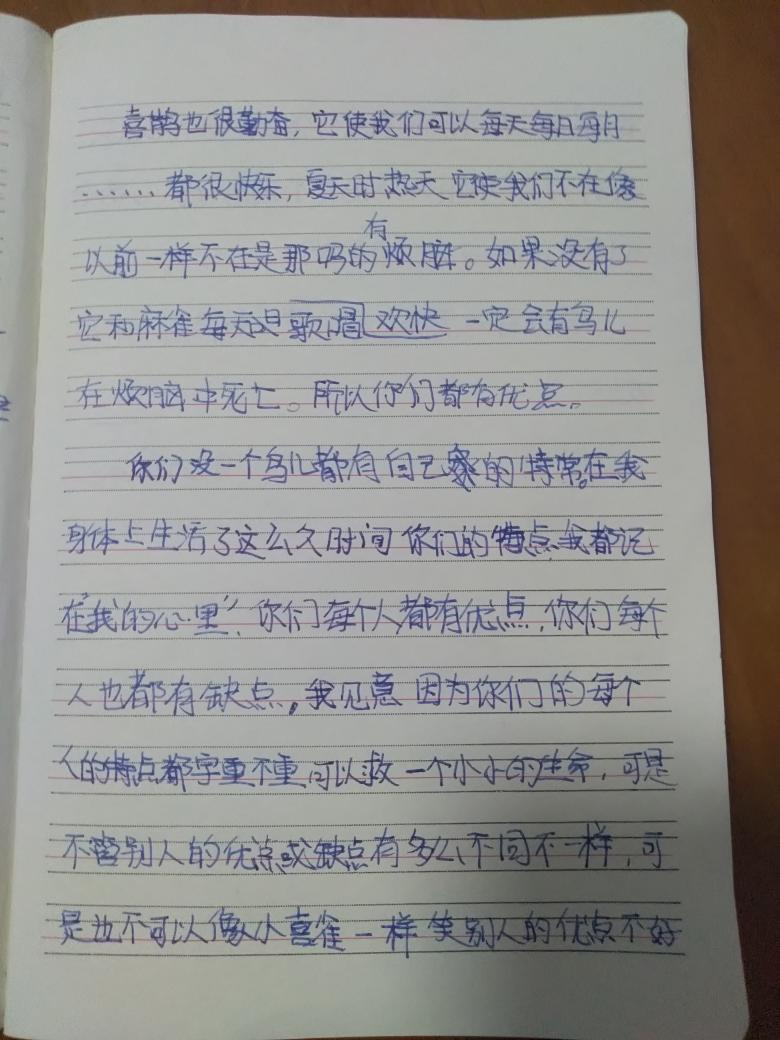 喜鹊也很勤奋，它使我们可以每天每日每月
……都很快乐，夏天时热天它使我们不在像
以前一样不在是那吗的有烦脑。如果没有了
它和麻雀每天的歌唱欢快一定会有鸟儿
在烦脑中死亡。所以你们都有优点。
你们没一个鸟儿都有自己的特常。在我
身体上生活了这么久时间你们的特点我都记
在“我的心里”，你们每个人都有优点，你们每个
人也都有缺点，我见意因为你们的每个
人的特点都字重不重可以救一个小小的生命，可是
不管别人的优点或缺点有多么不同不一样，可
是也不可以像小喜雀一样笑别人的优点不好